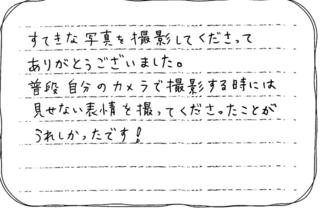 すてきな写真を撮影してくださって
ありがとうございました。
普段自分のカメラで撮影する時には
見せない表情を撮ってくださったことが
うれしかったです!